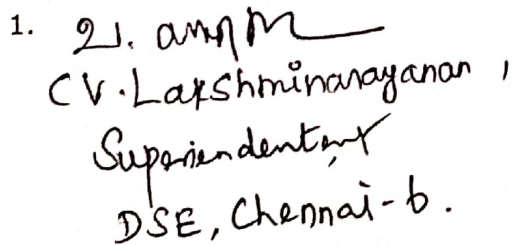 1.
CV. Lakshminarayanan,
Superiendent
DSE, Chennai-6.